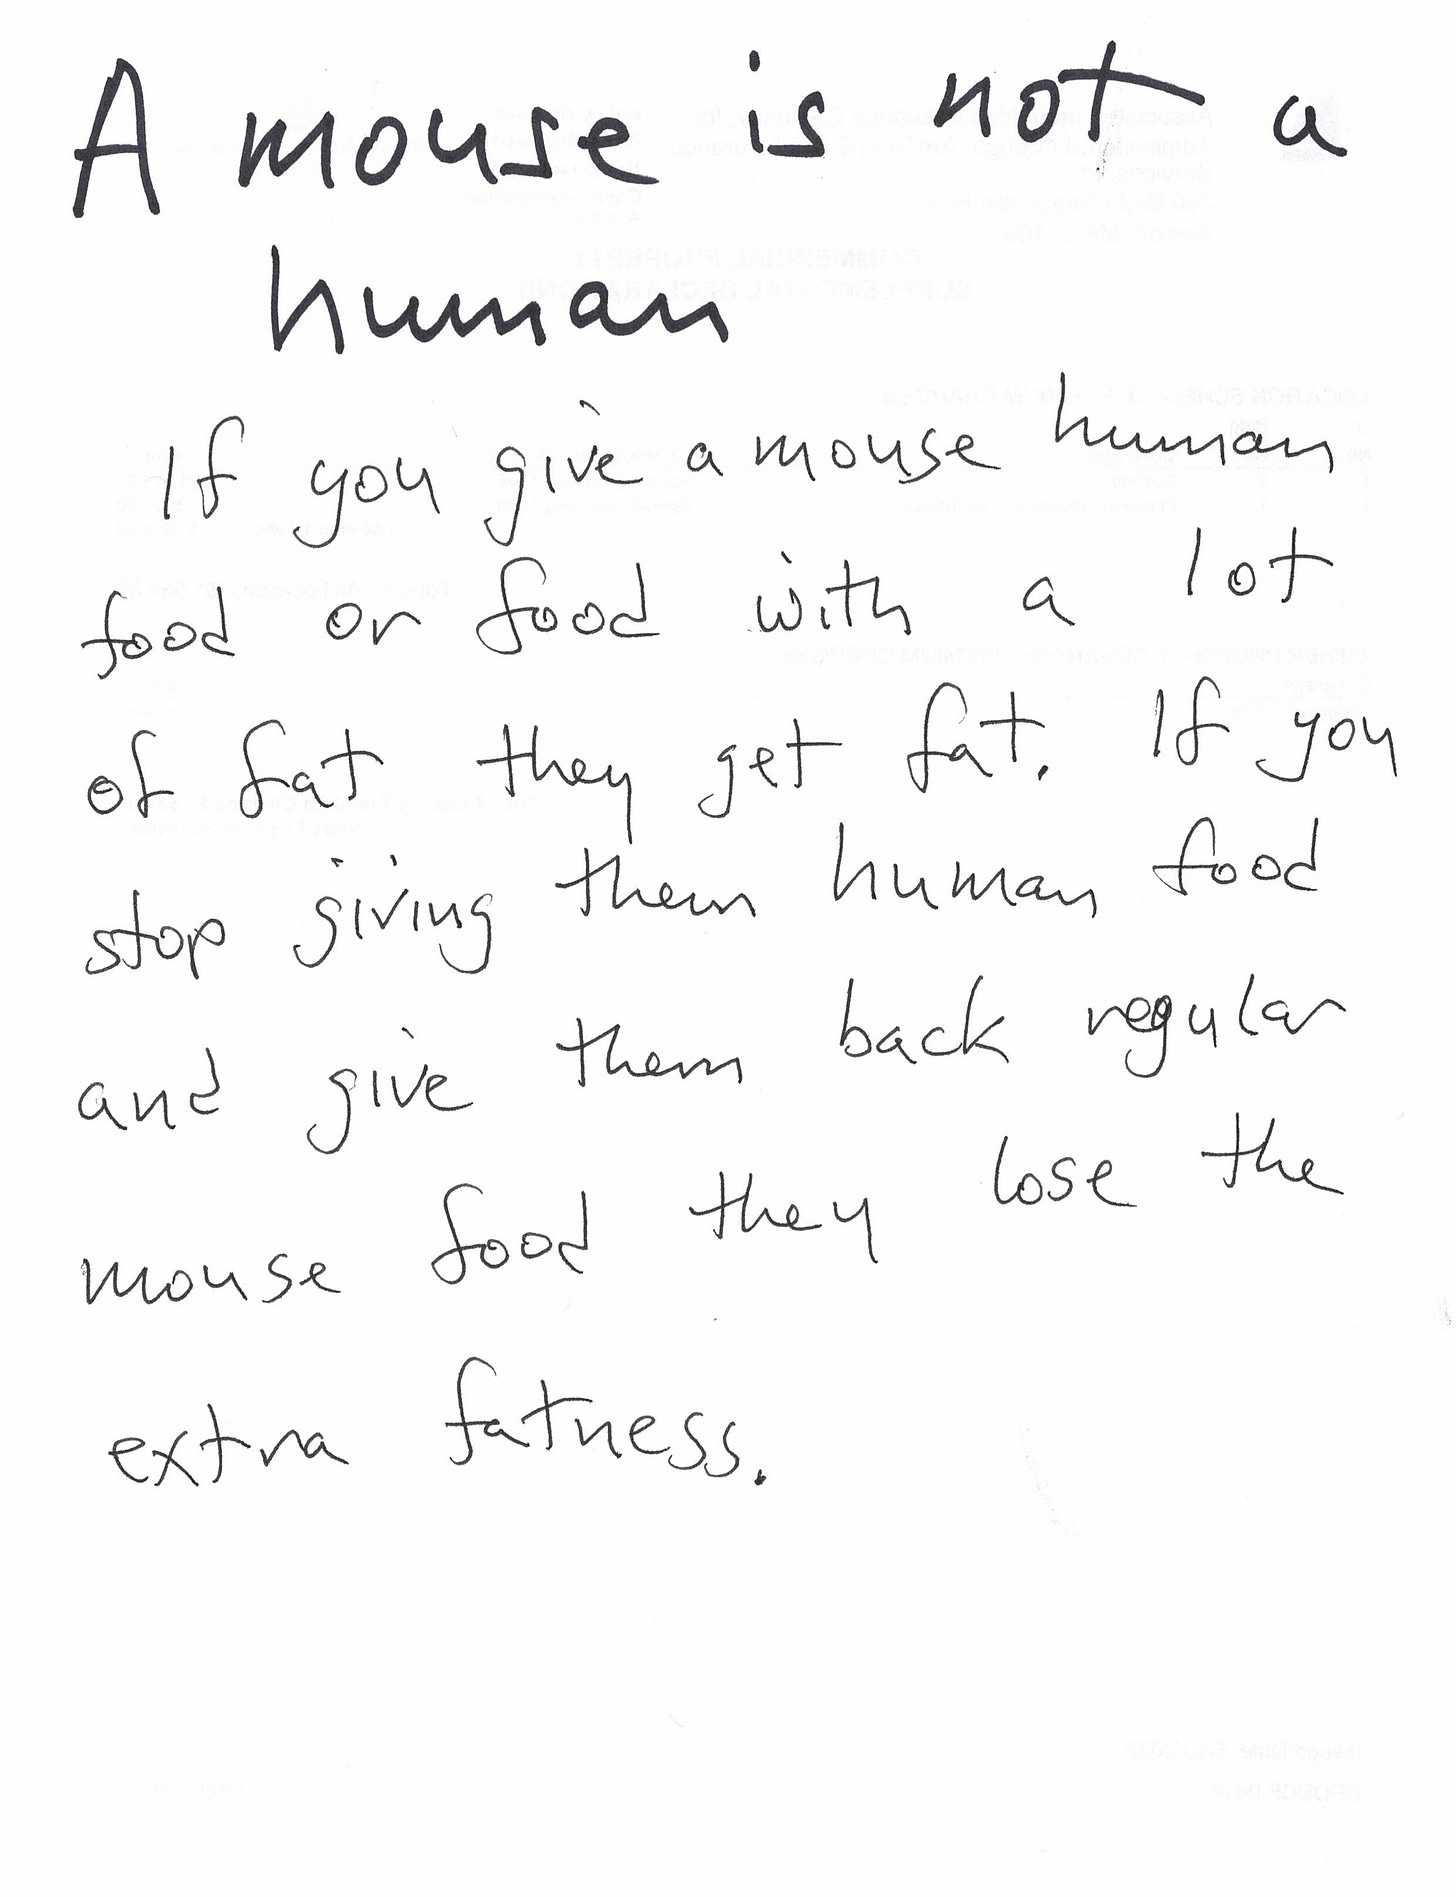 A mouse is not a
human
If you give a mouse human
food or food with a lot
of fat they get fat. If you
stop giving them human food
and give them back regular
mouse food they lose the
extra fatness.
COMMERCIAL PROPERTY
SUPPLEMENTAL DECLARATIONS
LOCATION SCHEDULE PREMIUM CHANGES